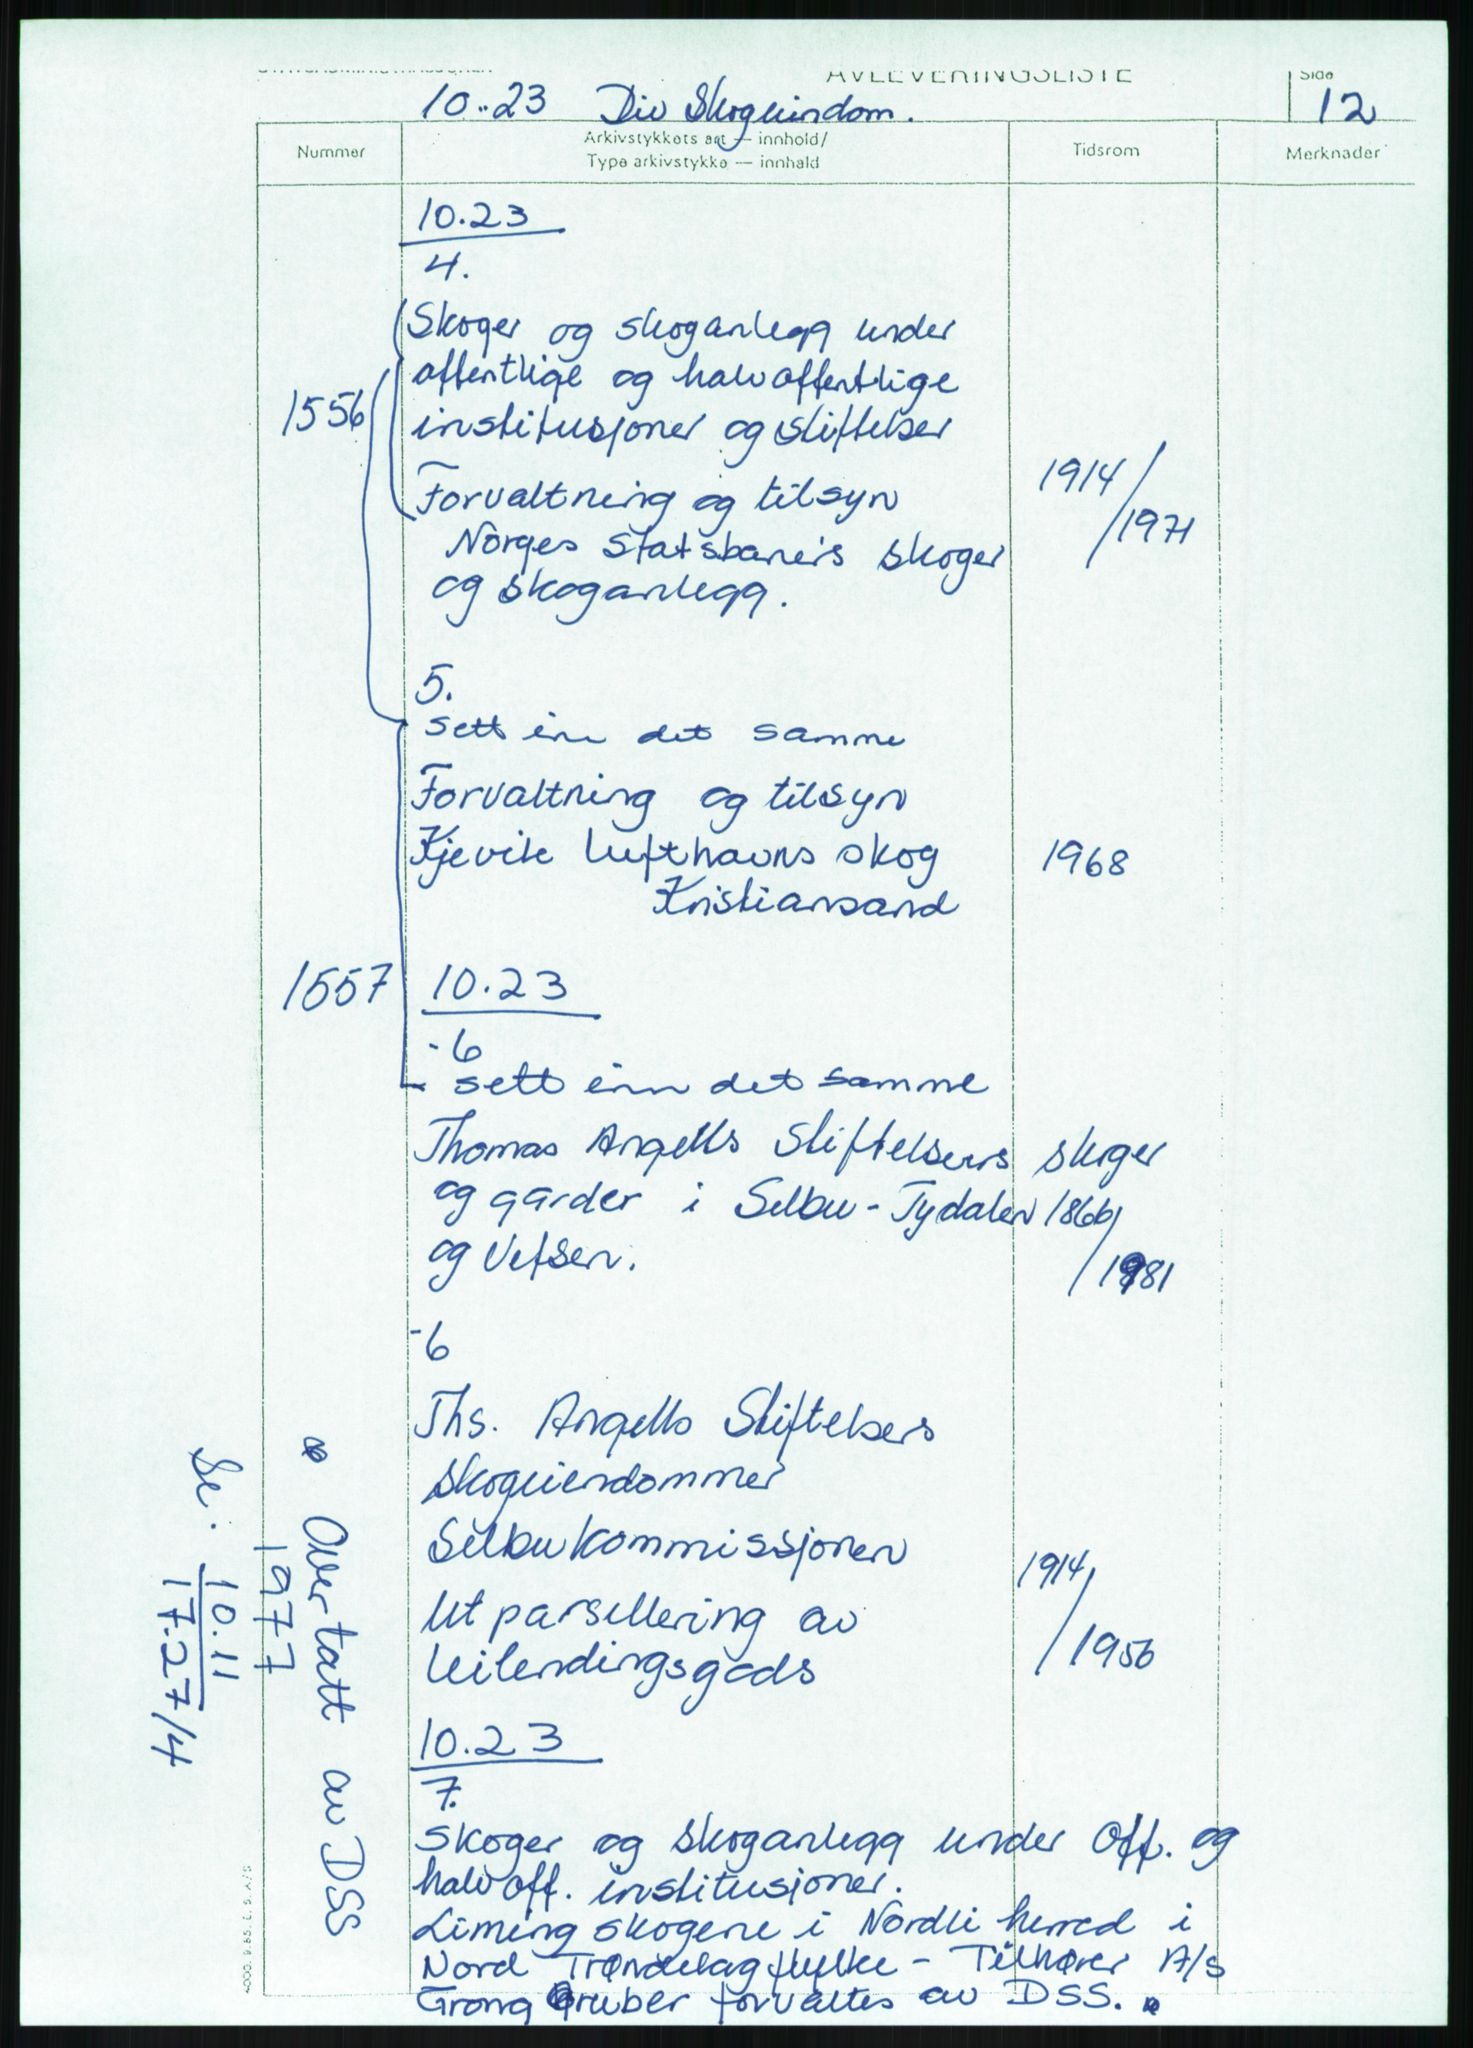 AVLEVERINGSLISTE
Side
10..23 Div Skogeiendom.
12
Nummer
Arkivstykkets art — innhold/
Type arkivstykke — innhald
Tidsrom
Merknader
10.23
4.
Skoger og skoganlegg under
offentlige og halvoffentlige
1556
institusjoner og stiftelser
Forvaltning og tilsyn
1914/1971
Norges Statsbaners skoger
og skoganlegg.
5.
sett inn det samme
Forvaltning og tilsyn
Kjevik lufthavns skog
1968
Kristiansand
1557
10.23
-6
sett inn det samme
Thomas Angells Stiftelsers skoger
og garder i Selbu - Tydalen 1866/
og Vefsen.
/1981
-6
Ths. Angells Stiftelsers
skogeiendommer
Selbukommissjonen
Utparsellering av
1914/1956
leilendingsgods
10.23
7.
Skoger og skoganlegg under off. og
halvoff. institusjoner.
Limingskogene i Nordli herred i
Nord Trøndelag fylke - Tilhører A/s
Grong Gruber forvaltes av DSS.
Overtatt av DSS
1977
Se: 10.11
17.27/4